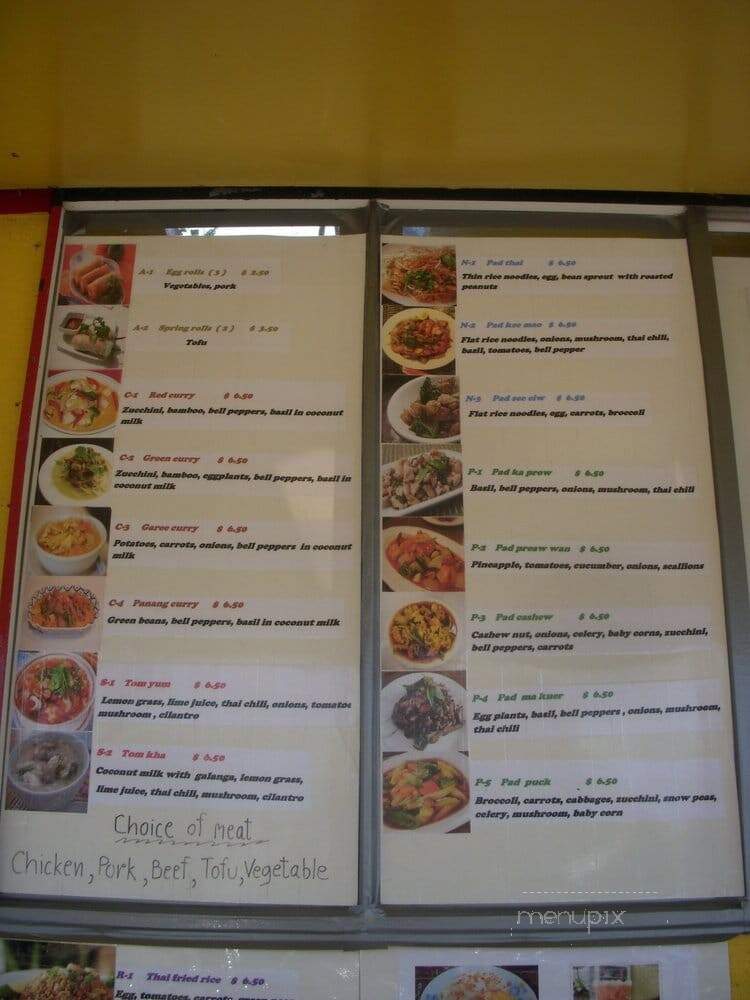 A-1 Egg rolls ( 3 ) $ 2.50
Vegetables, pork
A-2 Spring rolls ( 2 ) $ 3.50
Tofu
C-1 Red curry $ 6.50
Zucchini, bamboo, bell peppers, basil in coconut
milk
C-2 Green curry $ 6.50
Zucchini, bamboo, eggplants, bell peppers, basil in
coconut milk
C-3 Garee curry $ 6.50
Potatoes, carrots, onions, bell peppers in coconut
milk
C-4 Panang curry $ 6.50
Green beans, bell peppers, basil in coconut milk
S-1 Tom yum $ 6.50
Lemon grass, lime juice, thai chili, onions, tomatoe
mushroom , cilantro
S-2 Tom kha $ 6.50
Coconut milk with galanga, lemon grass,
lime juice, thai chili, mushroom, cilantro
Choice of meat
Chicken, Pork, Beef, Tofu, Vegetable
N-1 Pad thai $ 6.50
Thin rice noodles, egg, bean sprout with roasted
peanuts
N-2 Pad kee mao $ 6.50
Flat rice noodles, onions, mushroom, thai chili,
basil, tomatoes, bell pepper
N-3 Pad see eiw $ 6.50
Flat rice noodles, egg, carrots, broccoli
P-1 Pad ka prow $ 6.50
Basil, bell peppers, onions, mushroom, thai chili
P-2 Pad preaw wan $ 6.50
Pineapple, tomatoes, cucumber, onions, scallions
P-3 Pad cashew $ 6.50
Cashew nut, onions, celery, baby corns, zucchini,
bell peppers, carrots
P-4 Pad ma kuer $ 6.50
Egg plants, basil, bell peppers , onions, mushroom,
thai chili
P-5 Pad puck $ 6.50
Broccoli, carrots, cabbages, zucchini, snow peas,
celery, mushroom, baby corn
menupix
R-1 Thai fried rice $ 6.50
Egg, tomatoes, carrots, green